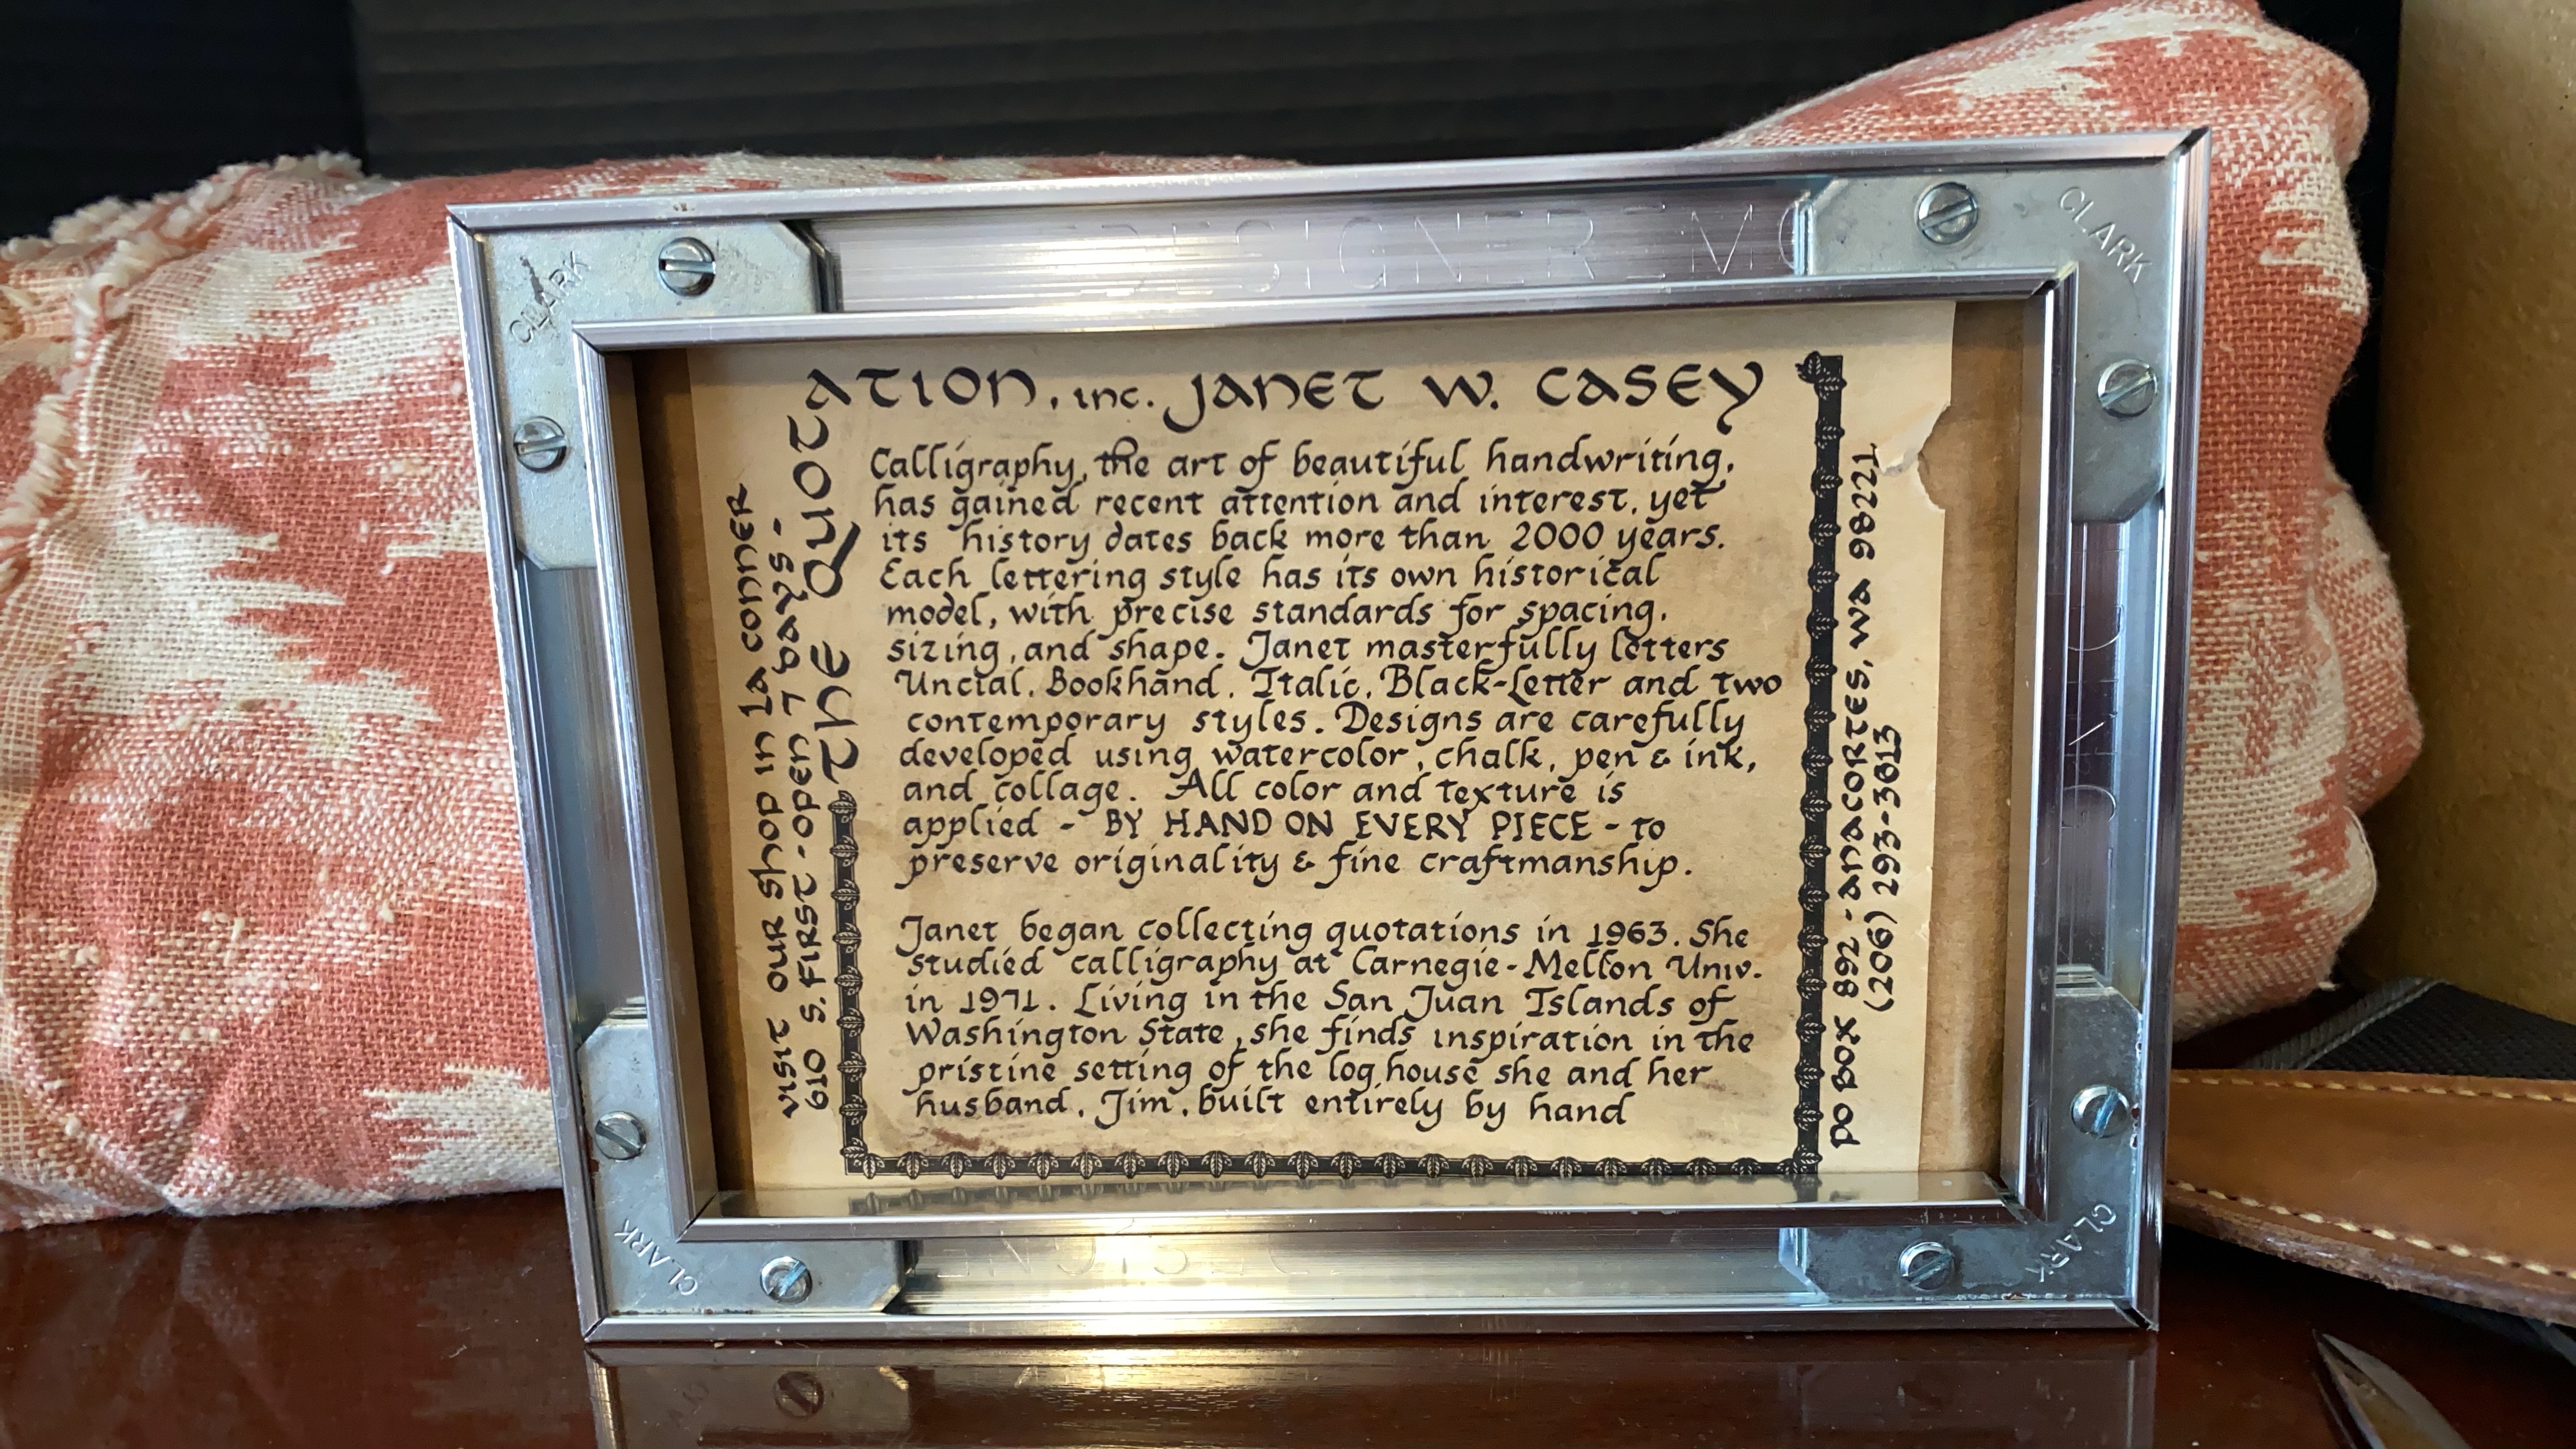 CLARK
DESIGNER EMO
CLARK
The Quotation, inc. Janet W. Casey
Calligraphy, the art of beautiful handwriting,
has gained recent attention and interest, yet
its history dates back more than 2000 years.
Each lettering style has its own historical
model, with precise standards for spacing,
sizing, and shape. Janet masterfully letters
Uncial, Bookhand, Italic, Black-Letter and two
contemporary styles. Designs are carefully
developed using watercolor, chalk, pen & ink,
and collage. All color and texture is
applied - BY HAND ON EVERY PIECE - to
preserve originality & fine craftmanship.
Janet began collecting quotations in 1963. She
studied calligraphy at Carnegie-Mellon Univ.
in 1971. Living in the San Juan Islands of
Washington State, she finds inspiration in the
pristine setting of the log house she and her
husband, Jim, built entirely by hand
visit our shop in La Conner
610 S. First - open 7 days -
PO Box 892 - Anacortes, WA 98221
(206) 293-3013
CLARK
CLARK